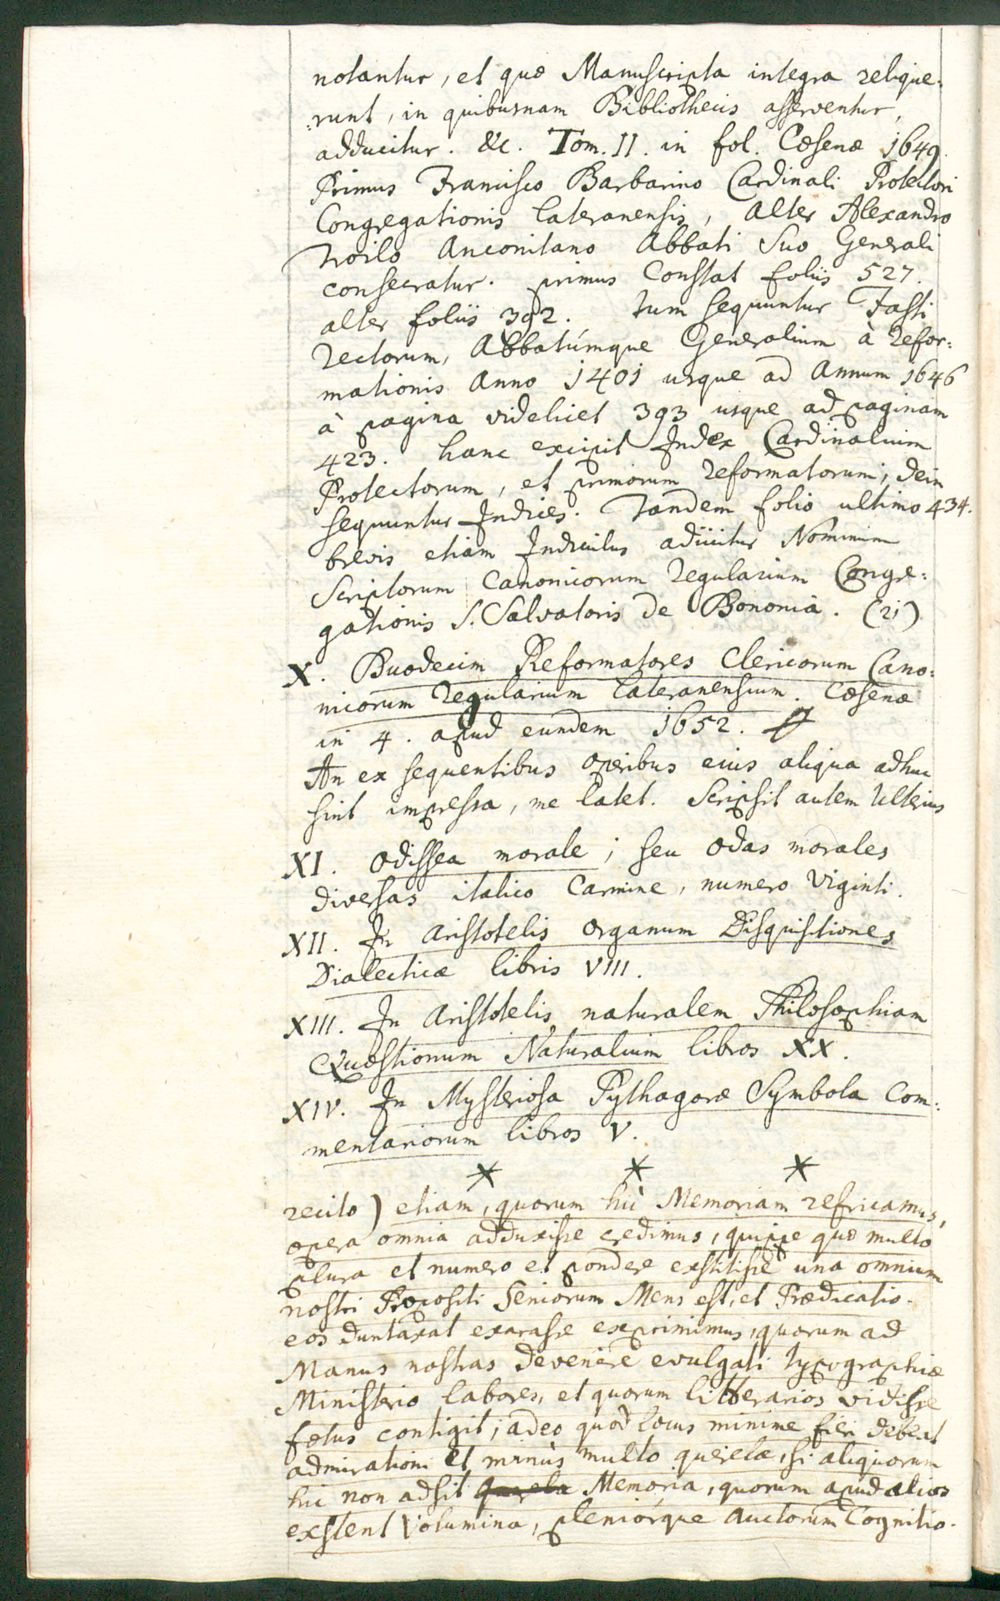 notantur, et quæ Manuscripta integra relique:
:runt, in quibusnam Bibliothecis asserventur,
adducitur. &c. Tom. II. in fol. Cæsenæ 1649.
Primus Francisco Barbarino Cardinali Protectori
Congregationis Lateranensis, Alter Alexandro
Troilo Anconitano Abbati Suo Generali
consecratur. primus Constat foliis 527.
alter foliis 392. tum sequuntur Fasti
Rectorum, Abbatúmque Generalium à refor:
mationis Anno 1401 usque ad Annum 1646
à pagina videlicet 393 usque ad paginam
423. hanc excipit Index Cardinalium
Protectorum, et primorum reformatorum; dein
sequuntur Indices. Tandem folio ultimo 434.
brevis etiam Indiculus adiicitur Nominum
Scriptorum Canonicorum regularium Congre:
gationis S. Salvatoris de Bononia. (21)
X. Duodecim Reformatores Clericorum Cano:
nicorum regularium Lateranensium. Cæsenæ
in 4. apud eundem 1652.
An ex sequentibus operibus eius aliqua adhuc
sint impressa, me latet. Scripsit autem Ulterius
XI. Odissea morale; seu Odas morales
diversas italico Carmine, numero Viginti.
XII. In Aristotelis Organum Disquisitiones
Dialecticæ libris VIII.
XIII. In Aristotelis naturalem Philosophiam
Quæstionum Naturalium libros XX.
XIV. In Mysteriosa Pythagoræ Symbola Com:
mentariorum libros V.
* * *
recito) etiam, quorum hîc Memoriam refricamus,
opera omnia adduxisse credimus, quippe quæ multo
plura et numero et pondere exstitisse una omnium
nostri Propositi Seniorum Mens est, et Prædicatio.
eos duntaxat exarasse exprimimus, quorum ad
Manus nostras devenêre evulgati typographiæ
Ministerio labores, et quorum litterarios vidisse
fœtus contigit; adeo quod locus minime fieri debeat
admirationi et minùs multo querelæ, si aliquorum
hic non adsit Memoria, quorum apud alios
exstent Volumina, pleniórque Auctorum Cognitio.